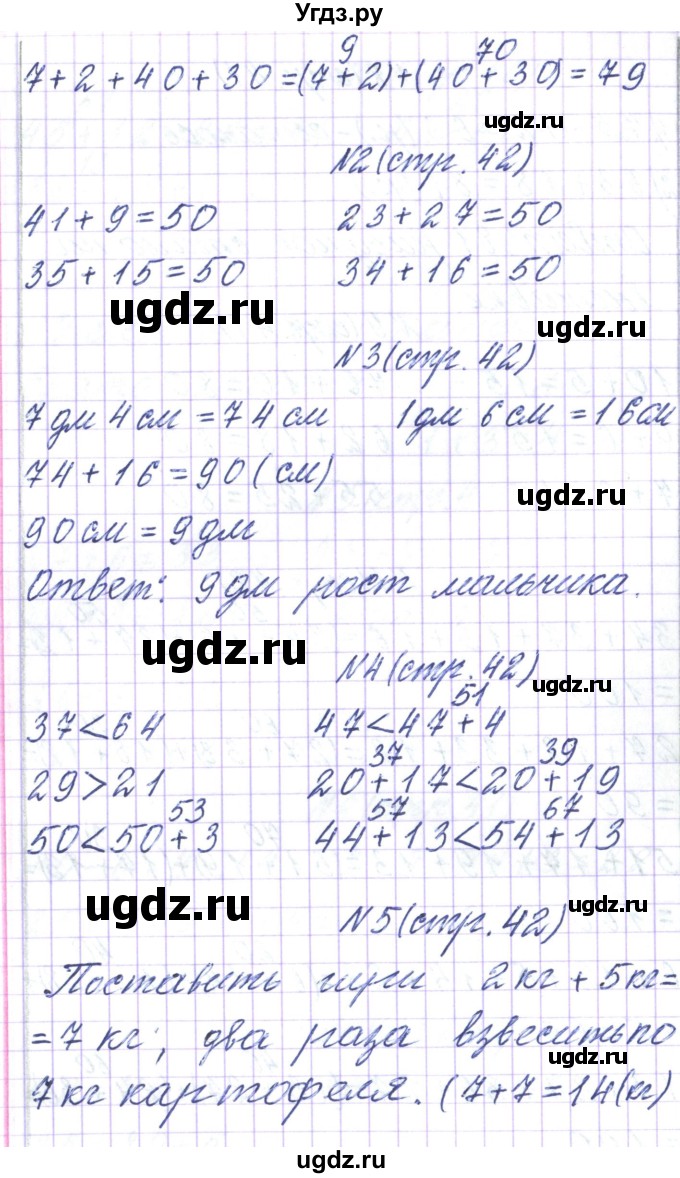 Угдз.ру
9 70
7+2+40+30=(7+2)+(40+30)=79
ugdz.ru
N2(стр. 42)
41+9=50 23+27=50
35+15=50 34+16=50
ugdz.ru ugdz.ru
N3(стр. 42)
7дм 4см =74см 1дм 6см =16см
74+16=90(см)
ugdz.ru
90см=9дм
Ответ: 9дм рост мальчика.
ugdz.ru
N4(стр. 42)
ugdz.ru
51
37<64 47<47+4
37 39
29>21 20+17<20+19
53 57 67
50<50+3 44+13<54+13
ugdz.ru ugdz.ru
N5(стр. 42)
Поставить гири 2кг+5кг=
=7кг, два раза взвесить по
ugdz.ru
7кг картофеля. (7+7=14(кг)
ugdz.ru